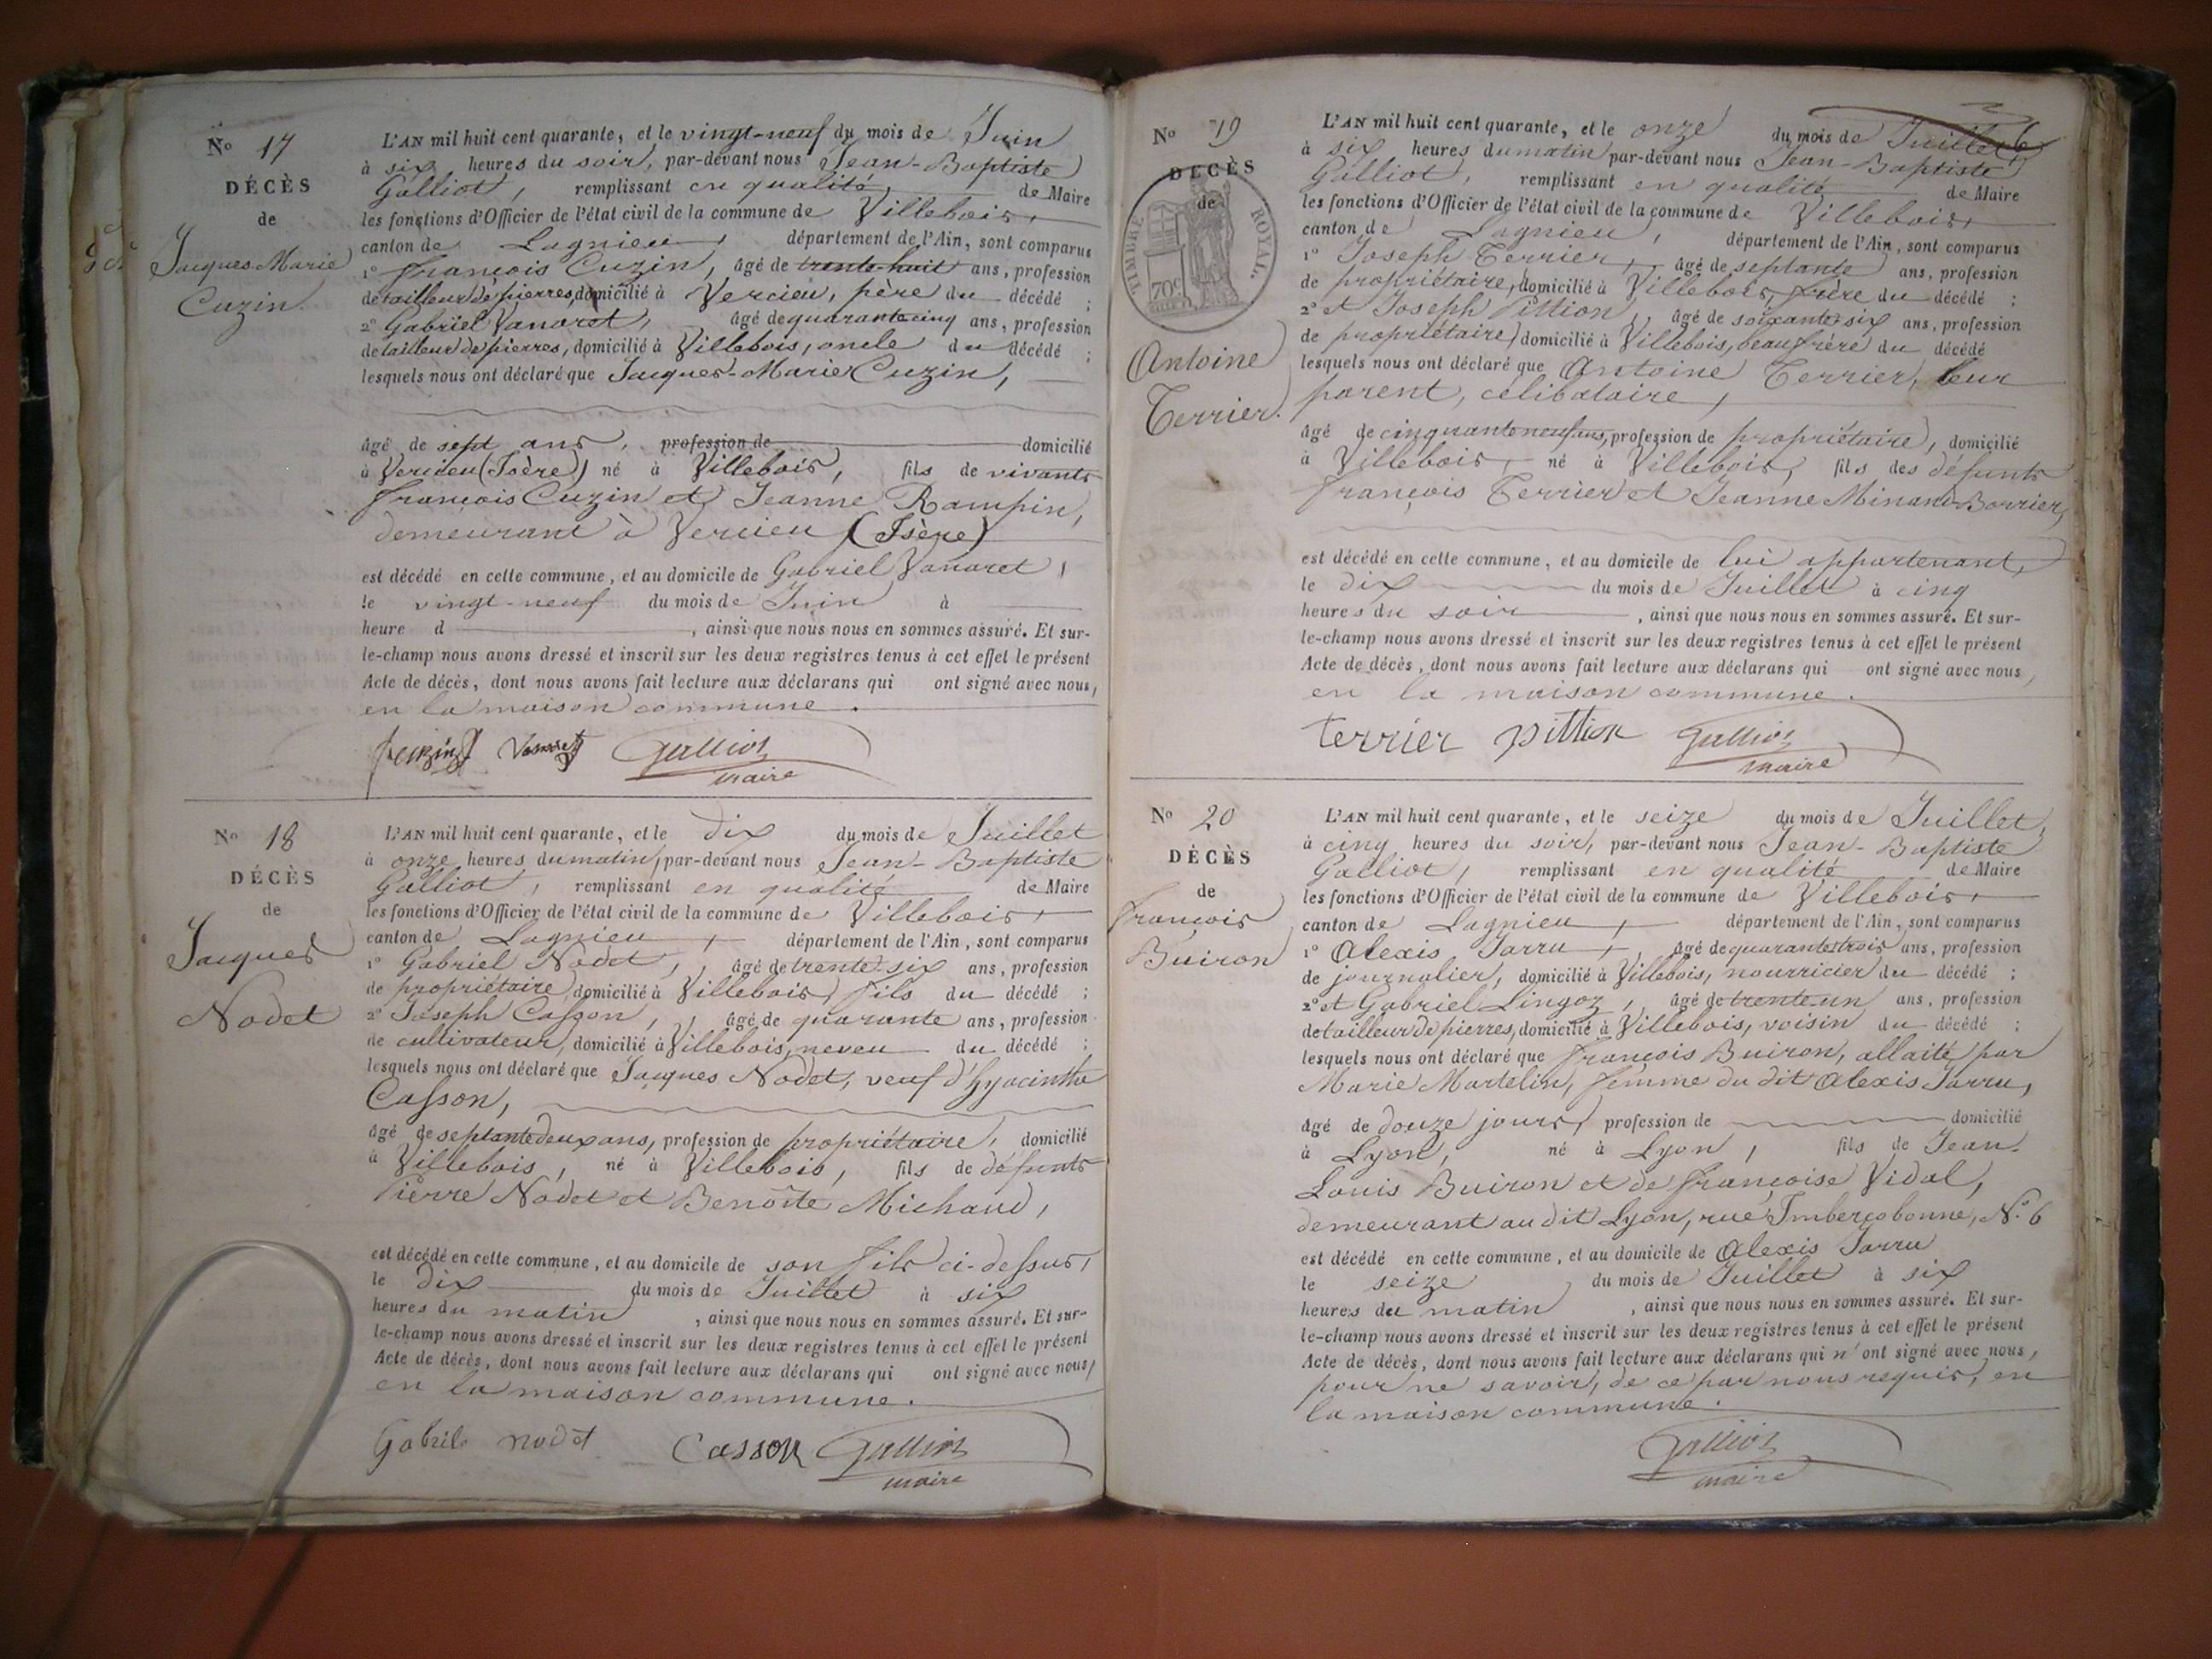 No 17
DÉCÈS
de
Jacques Marie
Cuzin.
L'AN mil huit cent quarante, et le vingt-neuf du mois de Juin
à six heures du soir, par-devant nous Jean-Baptiste
Galliot, remplissant en qualité de Maire
les fonctions d'Officier de l'état civil de la commune de Villebois,
canton de Lagnieu, département de l'Ain, sont comparus
1º François Cuzin, âgé de trente-huit ans, profession
de tailleur de pierres, domicilié à Vercieu, père du décédé ;
2º Gabriel Vanaret, âgé de quarante cinq ans, profession
de tailleur de pierres, domicilié à Villebois, oncle du décédé ;
lesquels nous ont déclaré que Jacques-Marie Cuzin,
âgé de sept ans, profession de domicilié
à Vercieu (Isère) né à Villebois, fils de vivants
François Cuzin et Jeanne Rampin,
demeurant à Vercieu (Isère)
est décédé en cette commune, et au domicile de Gabriel Vanaret,
le vingt-neuf du mois de Juin à
heure d , ainsi que nous nous en sommes assuré. Et sur-
le-champ nous avons dressé et inscrit sur les deux registres tenus à cet effet le présent
Acte de décès, dont nous avons fait lecture aux déclarans qui ont signé avec nous,
en la maison commune.
fcuzin Vanaret Galliot
maire
No 18
DÉCÈS
de
Jacques
Nodet
L'AN mil huit cent quarante, et le dix du mois de Juillet
à onze heures du matin, par-devant nous Jean-Baptiste
Galliot, remplissant en qualité de Maire
les fonctions d'Officier de l'état civil de la commune de Villebois,
canton de Lagnieu, département de l'Ain, sont comparus
1º Gabriel Nodet, âgé de trente-six ans, profession
de propriétaire, domicilié à Villebois, fils du décédé ;
2º Joseph Casson, âgé de quarante ans, profession
de cultivateur, domicilié à Villebois, neveu du décédé ;
lesquels nous ont déclaré que Jacques Nodet, veuf d'hyacinthe
Casson,
âgé de septante deux ans, profession de propriétaire, domicilié
à Villebois, né à Villebois, fils de défunts
Pierre Nodet et Benoîte Michaud,
est décédé en cette commune, et au domicile de son fils ci-dessus,
le dix du mois de Juillet à six
heures du matin , ainsi que nous nous en sommes assuré. Et sur-
le-champ nous avons dressé et inscrit sur les deux registres tenus à cet effet le présent
Acte de décès, dont nous avons fait lecture aux déclarans qui ont signé avec nous,
en la maison commune.
Gabriel nodet Casson Galliot
maire
No 19
DÉCÈS
de
TIMBRE ROYAL.
70c
Antoine
Terrier.
L'AN mil huit cent quarante, et le onze du mois de Juillet
à six heures du matin par-devant nous Jean-Baptiste
Galliot, remplissant en qualité de Maire
les fonctions d'Officier de l'état civil de la commune de Villebois,
canton de Lagnieu, département de l'Ain, sont comparus
1º Joseph Terrier, âgé de septante ans, profession
de propriétaire, domicilié à Villebois, frère du décédé ;
2º et Joseph Pittion, âgé de soixante-six ans, profession
de propriétaire, domicilié à Villebois, beau frère du décédé
lesquels nous ont déclaré que Antoine Terrier, leur
parent, célibataire,
âgé de cinquante neuf ans, profession de propriétaire, domicilié
à Villebois, né à Villebois, fils des défunts
François Terrier et Jeanne Minand-Borrier,
est décédé en cette commune, et au domicile de lui appartenant,
le dix du mois de Juillet à cinq
heures du soir , ainsi que nous nous en sommes assuré. Et sur-
le-champ nous avons dressé et inscrit sur les deux registres tenus à cet effet le présent
Acte de décès, dont nous avons fait lecture aux déclarans qui ont signé avec nous,
en la maison commune.
terrier pittion Galliot
maire
No 20
DÉCÈS
de
François
Buiron
L'AN mil huit cent quarante, et le seize du mois de Juillet,
à cinq heures du soir, par-devant nous Jean-Baptiste
Galliot, remplissant en qualité de Maire
les fonctions d'Officier de l'état civil de la commune de Villebois,
canton de Lagnieu, département de l'Ain, sont comparus
1º Alexis Jarru, âgé de quarante trois ans, profession
de journalier, domicilié à Villebois, nourricier du décédé ;
2º et Gabriel Lingoz, âgé de trente-un ans, profession
de tailleur de pierres, domicilié à Villebois, voisin du décédé ;
lesquels nous ont déclaré que François Buiron, allaité par
Marie Martelin, femme du dit Alexis Jarru,
âgé de douze jours, profession de domicilié
à Lyon, né à Lyon, fils de Jean-
Louis Buiron et de Françoise Vidal,
demeurant au dit Lyon, rue Imbercobonne, No. 6
est décédé en cette commune, et au domicile de Alexis Jarru
le seize du mois de Juillet à six
heures du matin , ainsi que nous nous en sommes assuré. Et sur-
le-champ nous avons dressé et inscrit sur les deux registres tenus à cet effet le présent
Acte de décès, dont nous avons fait lecture aux déclarans qui n'ont signé avec nous,
pour ne savoir, de ce par nous requis, en
la maison commune.
Galliot
maire